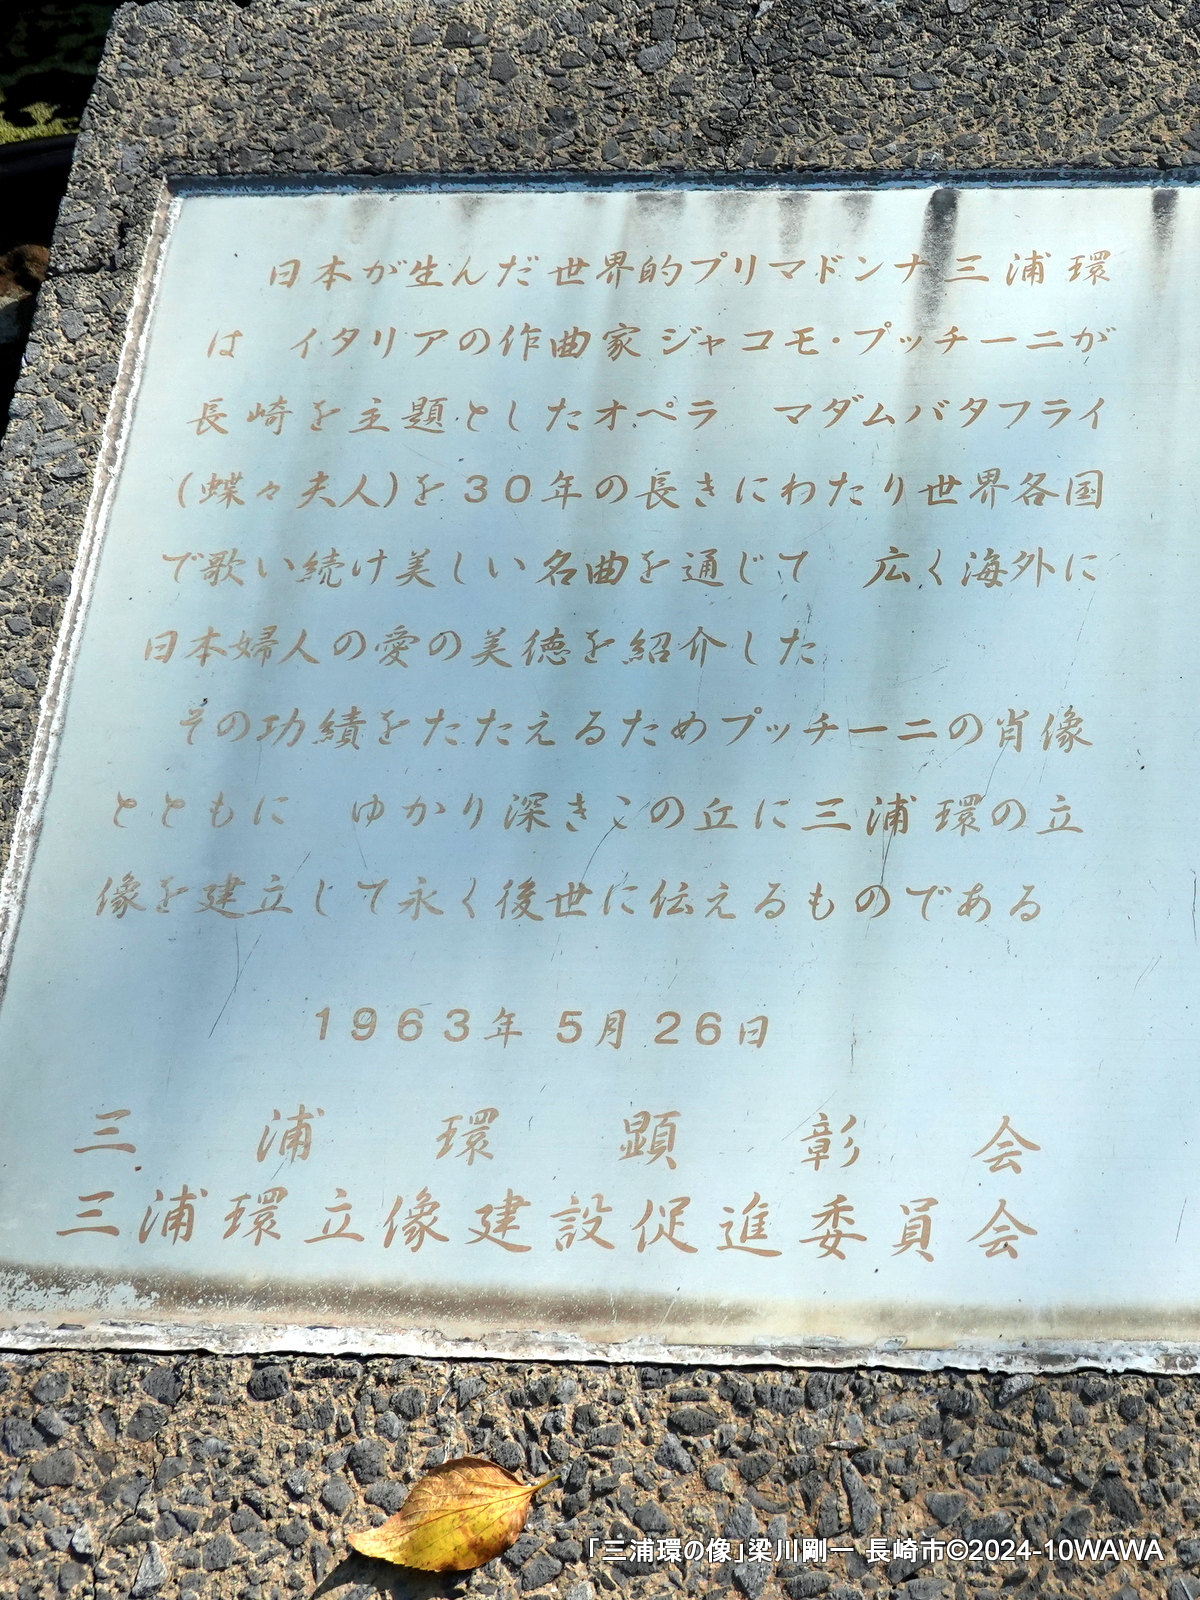 日本が生んだ世界的プリマドンナ三浦環
は　イタリアの作曲家ジャコモ・プッチーニが
長崎を主題としたオペラ　マダムバタフライ
(蝶々夫人)を30年の長きにわたり世界各国
で歌い続け美しい名曲を通じて　広く海外に
日本婦人の愛の美徳を紹介した
その功績をたたえるためプッチーニの肖像
とともに　ゆかり深きこの丘に三浦環の立
像を建立して永く後世に伝えるものである
1963年 5月26日
三浦環顕彰会
三浦環立像建設促進委員会
「三浦環の像」梁川剛一 長崎市©2024-10WAWA